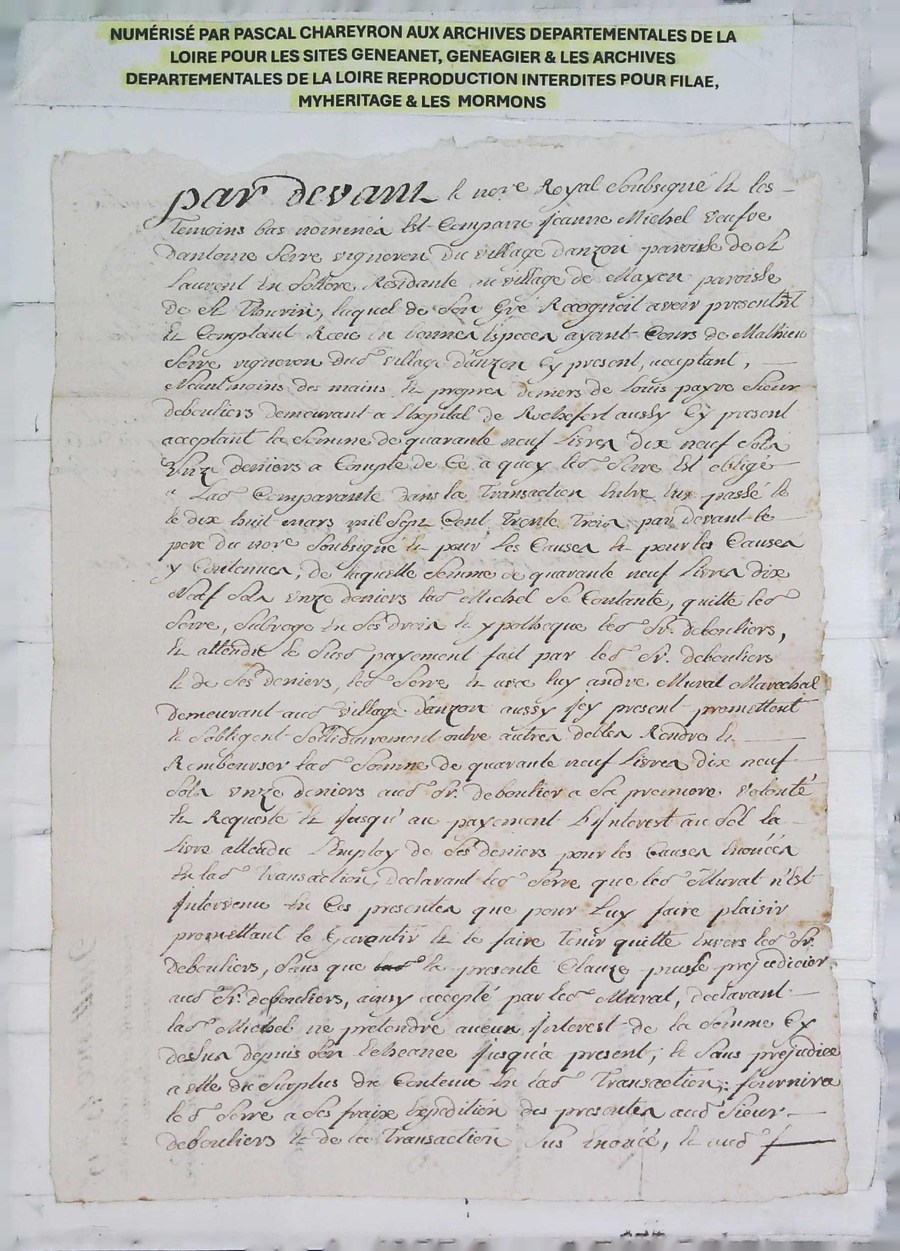 NUMÉRISÉ PAR PASCAL CHAREYRON AUX ARCHIVES DEPARTEMENTALES DE LA
LOIRE POUR LES SITES GENEANET, GENEAGIER & LES ARCHIVES
DEPARTEMENTALES DE LA LOIRE REPRODUCTION INTERDITES POUR FILAE,
MYHERITAGE & LES MORMONS
par devant le nore Royal Soubsigné Et les
Temoins bas nommés Est Comparu jeanne Michel veufve
Dantoine Serre vigneron du village danzon paroisse de St
Laurent En Sollore Residante au village de paroisse
de St Thurin, laquel de Son Gré Recognoit avoir presentmt
Et Comptant Receu En bonnes Especes ayant Cours de Mathieu
Serre vigneron dud village danzon Cy present, acceptant,
Neantmoins des mains Et propres deniers de Louis payre Sieur
debouliers demeurant a l'hopital de Rochefort aussy Cy present
acceptant la Somme de quarante neuf Livres dix neuf Sols
Unze deniers a Compte de Ce a quoy led Serre Est obligé
a Lad Comparante dans la Transaction Entre Eux passé le
le dix huit mars mil Sept Cent Trente Trois par devant le
pere du nore Soubsigné Et pour les Causes Et pour les Causes
y Contenues, de laquelle Somme de quarante neuf Livres dix
Neuf Sols Unze deniers lad Michel Se Contante, quitte led
Serre, Subroge En Ses droits Et ypotheque led Sr. debouliers,
Et attendu le Susd payement fait par led Sr. debouliers
Et de Ses deniers, led Serre Et avec luy andré Murat Marechal
demeurant aud village danzon aussy jcy present promettent
Et Sobligent Sollidairement outre autres debtes Rendre Et
Rembourser lad Somme de quarante neuf Livres dix neuf
Sols Unze deniers aud Sr. deboulier a Sa premiere volonté
Et Requiste Et jusqu'au payement L'jnterest au Sol la
Livre attendu L'Employ de Ses deniers pour les Causes Enoncés
En lad Transaction, declarant led Serre que led Murat n'Est
jntervenu En Ces presentes que pour Luy faire plaisir
promettant le Garentir Et le faire Tenir quitte Envers led Sr.
debouliers, Sans que la presente Clauze puisse prejudicier
aud Sr. debouliers, ainsy accepté par led Murat, declarant
lad Michel ne pretendre aucun jnterest de la Somme Cy
dessus depuis Son Echeance jusqu'a present; Et Sans prejudice
a elle du Surplus du Contenu En lad Transaction; fournira
led Serre a Ses fraix Expedition des presentes aud Sieur
debouliers Et de la Transaction Sus Enoncé, Et aud